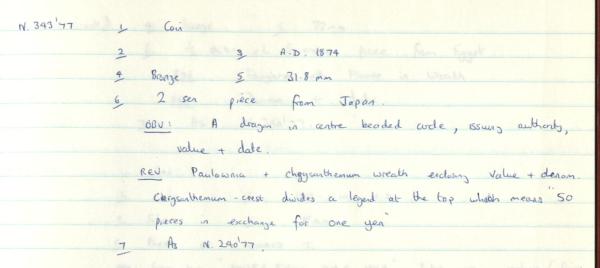 N. 343'77 1 Coin
2 3 A.D. 1874
4 Bronze 5 31.8 mm
6 2 sen piece from Japan.
OBV: A dragon in centre beaded circle, issuing authority,
value + date.
REV Paulownia + chrysanthemum wreath enclosing value + denom.
Chrysanthemum-crest divides a legend at the top which means "50
pieces in exchange for one yen"
7 As N. 240'77.